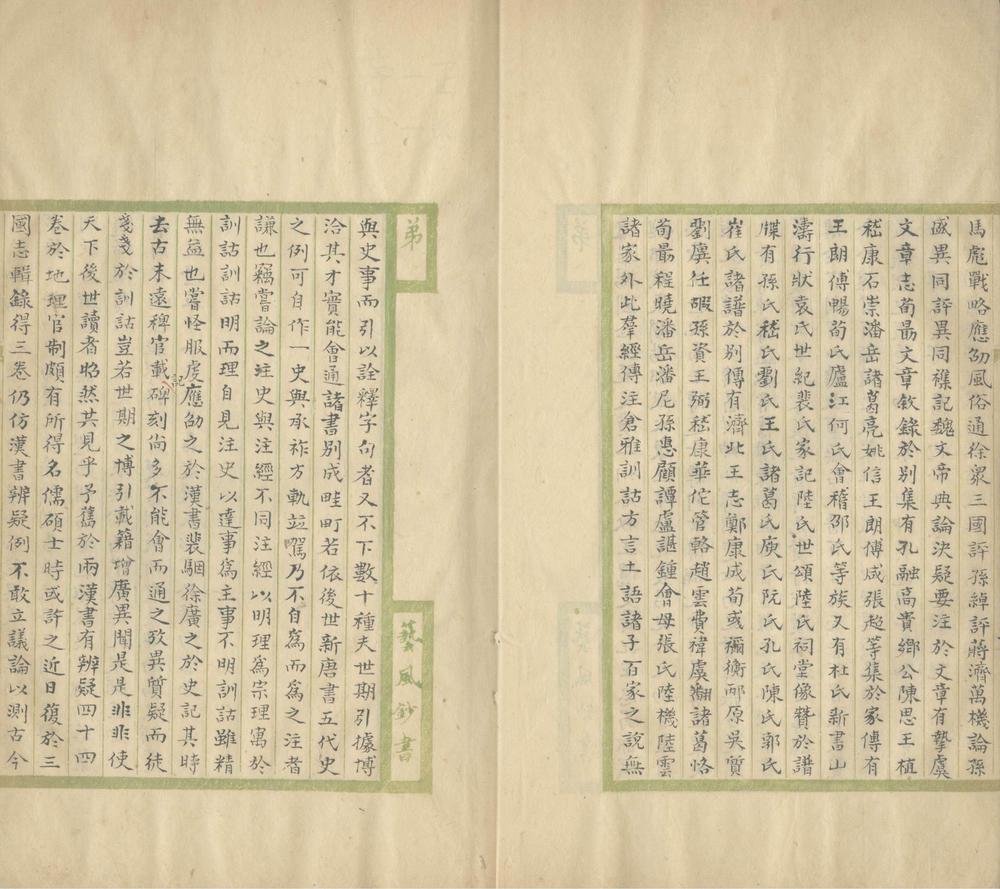 馬彪戰略應劭風俗通徐衆三國評孫綽評蔣濟萬機論孫
盛異同評異同襍記魏文帝典論決疑要注於文章有摯虞
文章志荀勗文章敘錄於別集有孔融高貴鄉公陳思王植
嵇康石崇潘岳諸葛亮姚信王朗傅咸張超等集於家傳有
王朗傅暢荀氏廬江何氏會稽邵氏等族又有杜氏新書山
濤行狀袁氏世紀裴氏家記陸氏世頌陸氏祠堂像贊於譜
牒有孫氏嵇氏劉氏王氏諸葛氏庾氏阮氏孔氏陳氏郭氏
崔氏諸譜於別傳有濟北王志鄭康成荀彧禰衡邴原吳質
劉廙任嘏孫資王弼嵇康華佗管輅趙雲費禕虞翻諸葛恪
荀勗程曉潘岳潘尼孫惠顧譚盧諶鍾會母張氏陸機陸雲
諸家外此羣經傳注倉雅訓詁方言土語諸子百家之說無
弟
藝風鈔書
與史事而引以詮釋字句者又不下數十種夫世期引據博
洽其才實能會通諸書別成畦町若依後世新唐書五代史
之例可自作一史與承祚方軌竝駕乃不自為而為之注者
謙也竊嘗論之注史與注經不同注經以明理為宗理寓於
訓詁訓詁明而理自見注史以達事為主事不明訓詁雖精
無益也嘗怪服虔應劭之於漢書裴駰徐廣之於史記其時
去古未遠稗官載記碑刻尚多不能會而通之攷異質疑而徒
戔戔於訓詁豈若世期之博引載籍增廣異聞是是非非使
天下後世讀者昭然共見乎予舊於兩漢書有辨疑四十四
卷於地理官制頗有所得名儒碩士時或許之近日復於三
國志輯錄得三卷仍仿漢書辨疑例不敢立議論以測古今